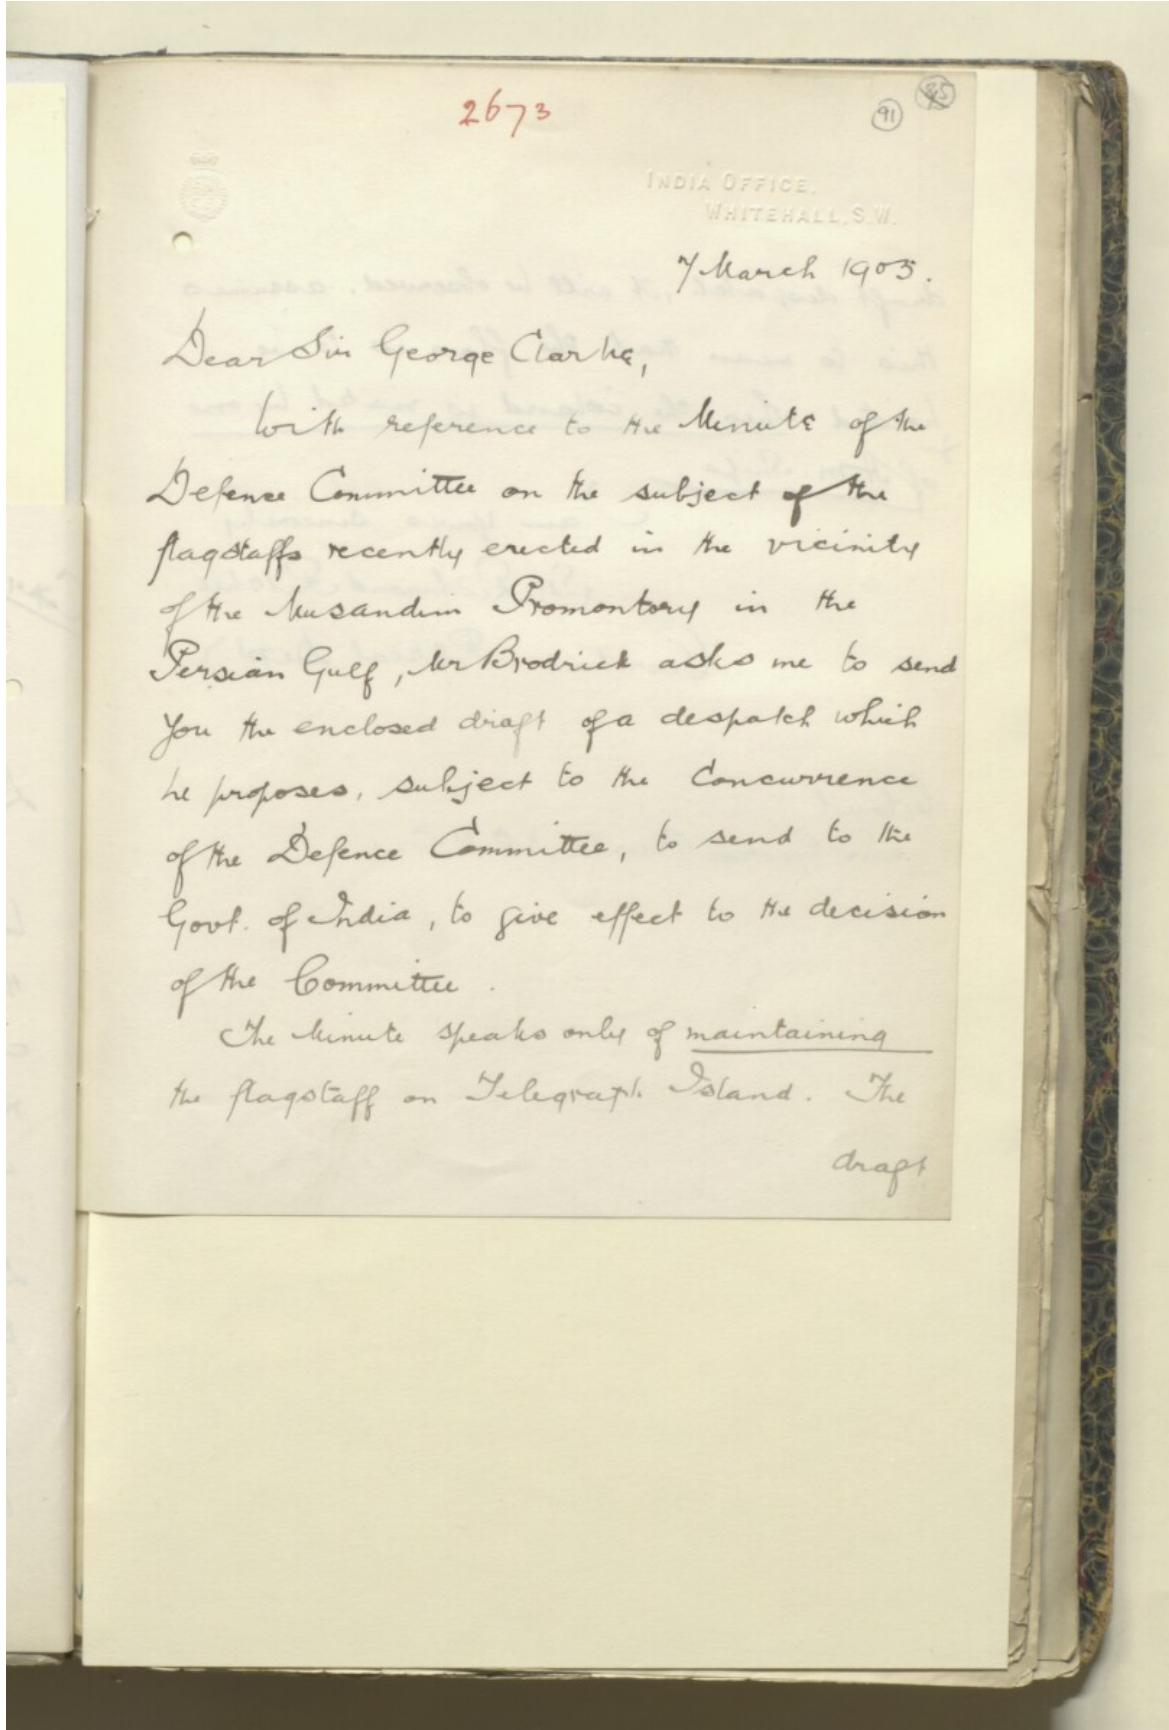 2673
91
INDIA OFFICE,
WHITEHALL, S.W.
7 March 1905.
Dear Sir George Clarke,
With reference to the Minute of the
Defence Committee on the subject of the
flagstaffs recently erected in the vicinity
of the Musandim Promontory in the
Persian Gulf, Mr Brodrick asks me to send
you the enclosed draft of a despatch which
he proposes, subject to the concurrence
of the Defence Committee, to send to the
Govt. of India, to give effect to the decision
of the Committee.
The Minute speaks only of maintaining
the flagstaff on Telegraph Island. The
draft